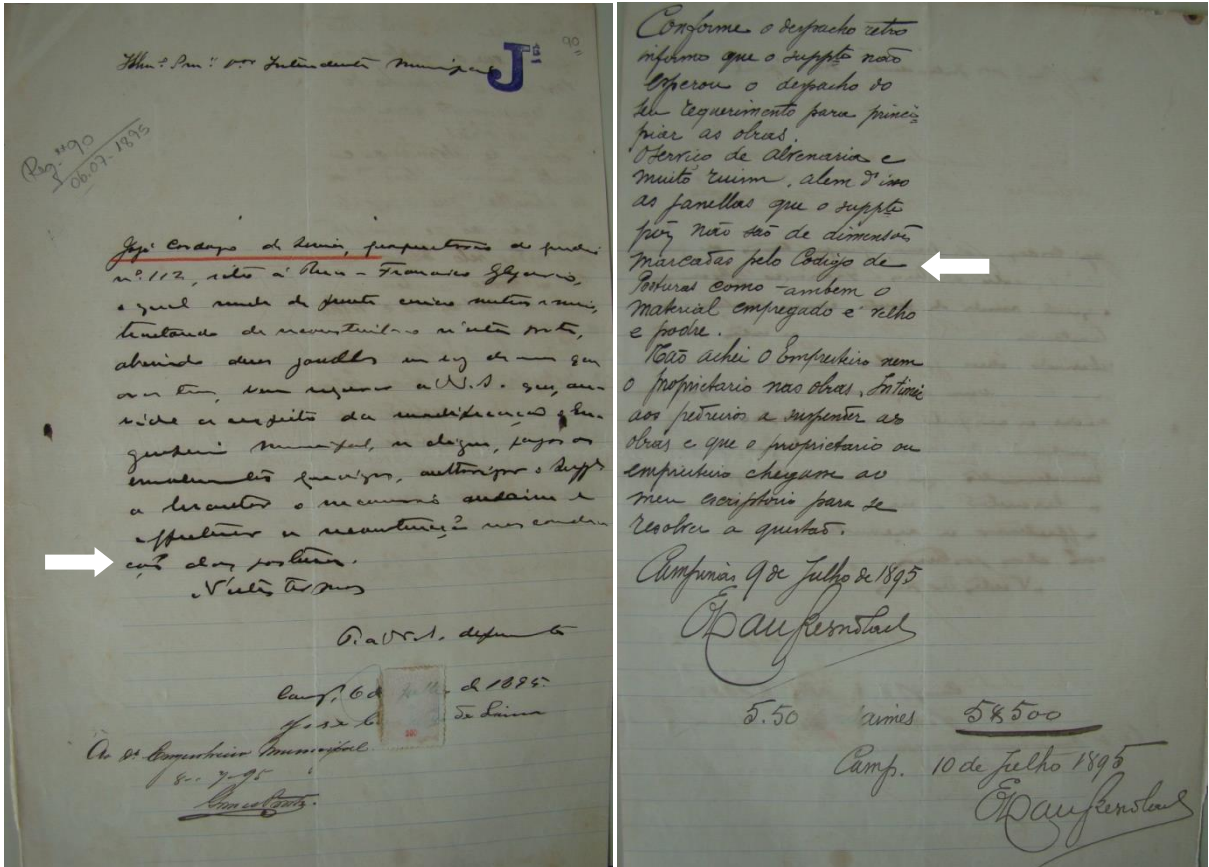 Illmº Snrº Dor Intendente Municipal
Jª
90
Reg. nº 90
06-07-1895
José Cardozo de, proprietario do predio
nº 112, sito á Rua Francisco Glycerio,
o qual mede de frente cinco metros e meio,
tractando de reconstruil-o n'esta parte,
abrindo duas janellas em vez de uma que
ora tem, vem requerer a V.S. que, ou-
vido a respeito da modificação o En-
genheiro Municipal, se digne, pagos os
emolumentos, authorisar o Suppe
a levantar o necessario andaime e
effectuar a reconstrucção nas condi-
ções das posturas.
N'estes termos
P. a V.S. deferimento
Camp. 6 de de 1895.
José de
300
Ao Dr Engenheiro Municipal
8-7-95
Conforme o despacho retro
informo que o suppte não
esperou o despacho do
seu requerimento para princi-
piar as obras.
O serviço de alvenaria e
muito ruim, alem d'isso
as janellas que o suppte
poz não são de dimensões
marcadas pelo Codigo de
Posturas como -ambem o
material empregado é velho
e podre.
Não achei o Empreiteiro nem
o proprietario nas obras. Intimei
aos pedreiros a suspender as
obras e que o proprietario ou
empreiteiro chegasse ao
meu escriptorio para se
resolver a questão.
Campinas 9 de Julho de 1895
5.50 aimes 5$500
Camp. 10 de Julho 1895